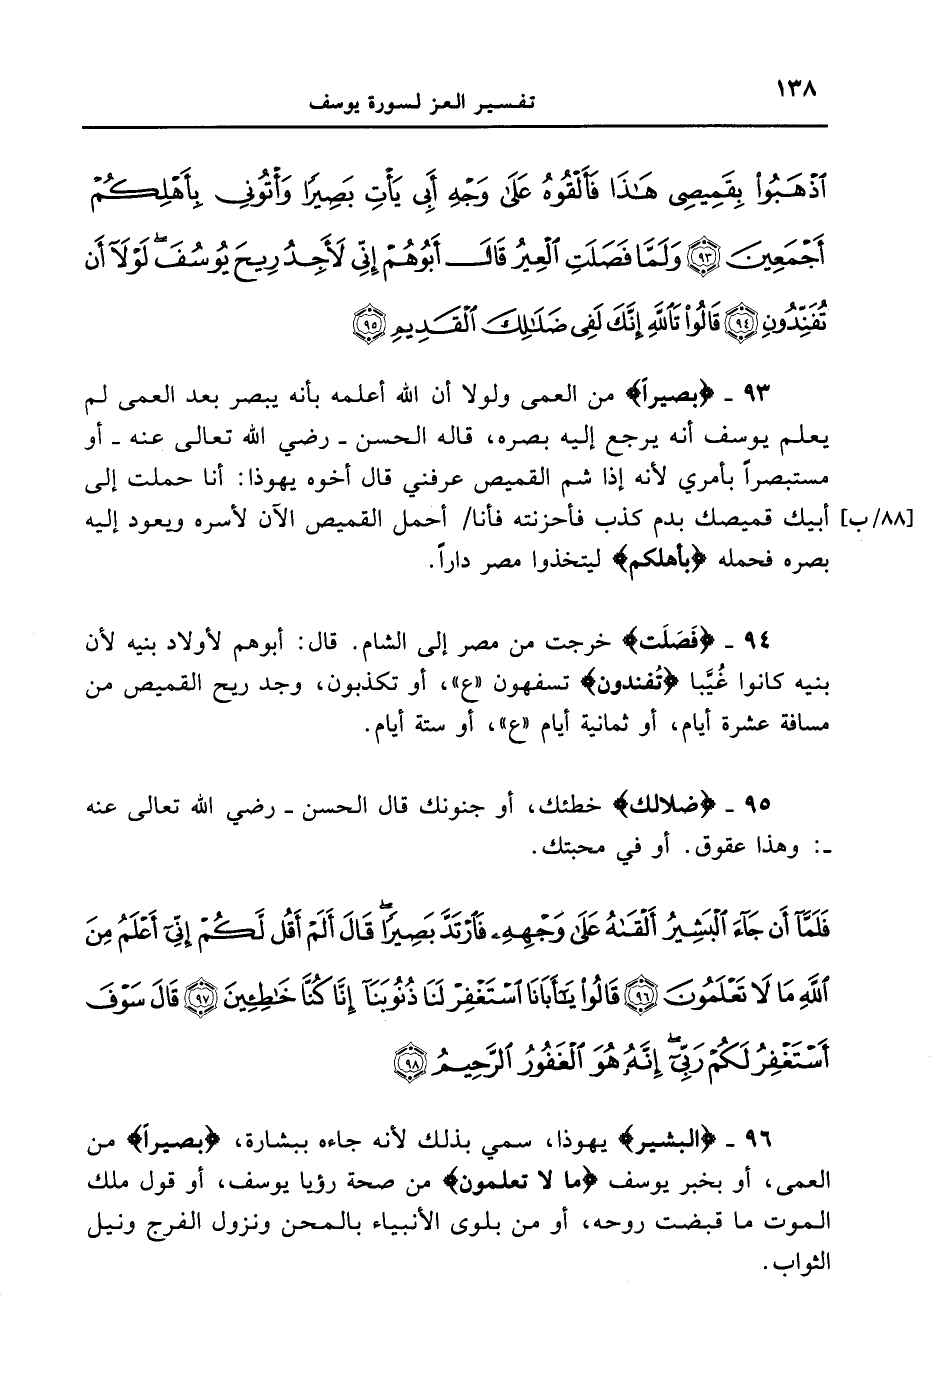 ١٣٨
تفسير العز لسورة يوسف
ٱذْهَبُوا۟ بِقَمِيصِى هَـٰذَا فَأَلْقُوهُ عَلَىٰ وَجْهِ أَبِى يَأْتِ بَصِيرًا وَأْتُونِى بِأَهْلِكُمْ
أَجْمَعِينَ ٩٣ وَلَمَّا فَصَلَتِ ٱلْعِيرُ قَالَ أَبُوهُمْ إِنِّى لَأَجِدُ رِيحَ يُوسُفَ ۖ لَوْلَآ أَن
تُفَنِّدُونِ ٩٤ قَالُوا۟ تَٱللَّهِ إِنَّكَ لَفِى ضَلَـٰلِكَ ٱلْقَدِيمِ ٩٥
٩٣ ـ ﴿بصيراً﴾ من العمى ولولا أن الله أعلمه بأنه يبصر بعد العمى لم
يعلم يوسف أنه يرجع إليه بصره، قاله الحسن ـ رضي الله تعالى عنه ـ أو
مستبصراً بأمري لأنه إذا شم القميص عرفني قال أخوه يهوذا: أنا حملت إلى
[٨٨/ب] أبيك قميصك بدم كذب فأحزنته فأنا/ أحمل القميص الآن لأسره ويعود إليه
بصره فحمله ﴿بأهلكم﴾ ليتخذوا مصر داراً.
٩٤ ـ ﴿فَصَلَت﴾ خرجت من مصر إلى الشام. قال: أبوهم لأولاد بنيه لأن
بنيه كانوا غُيَّبا ﴿تُفندون﴾ تسفهون «ع»، أو تكذبون، وجد ريح القميص من
مسافة عشرة أيام، أو ثمانية أيام «ع»، أو ستة أيام.
٩٥ ـ ﴿ضلالك﴾ خطئك، أو جنونك قال الحسن ـ رضي الله تعالى عنه
ـ: وهذا عقوق. أو في محبتك.
فَلَمَّآ أَن جَآءَ ٱلْبَشِيرُ أَلْقَىٰهُ عَلَىٰ وَجْهِهِۦ فَٱرْتَدَّ بَصِيرًا ۖ قَالَ أَلَمْ أَقُل لَّكُمْ إِنِّىٓ أَعْلَمُ مِنَ
ٱللَّهِ مَا لَا تَعْلَمُونَ ٩٦ قَالُوا۟ يَـٰٓأَبَانَا ٱسْتَغْفِرْ لَنَا ذُنُوبَنَآ إِنَّا كُنَّا خَـٰطِـِٔينَ ٩٧ قَالَ سَوْفَ
أَسْتَغْفِرُ لَكُمْ رَبِّىٓ ۖ إِنَّهُۥ هُوَ ٱلْغَفُورُ ٱلرَّحِيمُ ٩٨
٩٦ ـ ﴿البشير﴾ يهوذا، سمي بذلك لأنه جاءه ببشارة، ﴿بصيراً﴾ من
العمى، أو بخبر يوسف ﴿ما لا تعلمون﴾ من صحة رؤيا يوسف، أو قول ملك
الموت ما قبضت روحه، أو من بلوى الأنبياء بالمحن ونزول الفرج ونيل
الثواب.